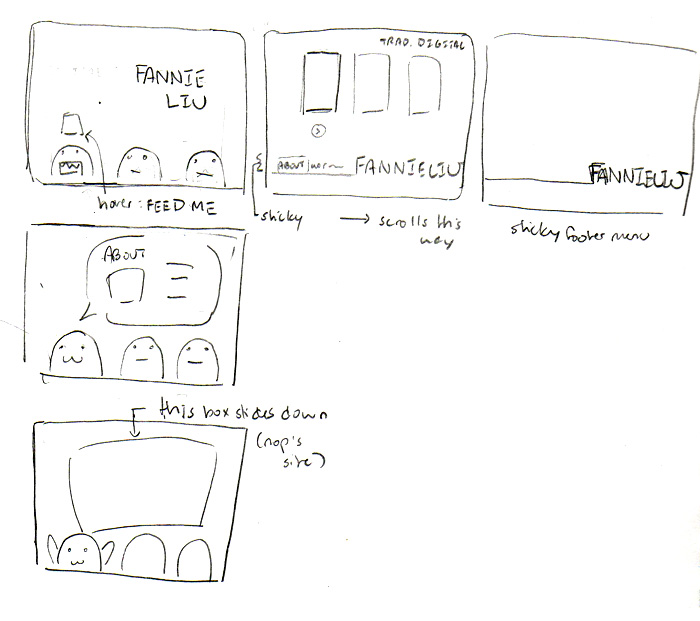 FANNIE
LIU
hover: FEED ME
TRAD. DIGITAL
ABOUT
FANNIELIU
sticky
→ scrolls this
way
FANNIELIU
sticky footer menu
ABOUT
this box slides down
site)